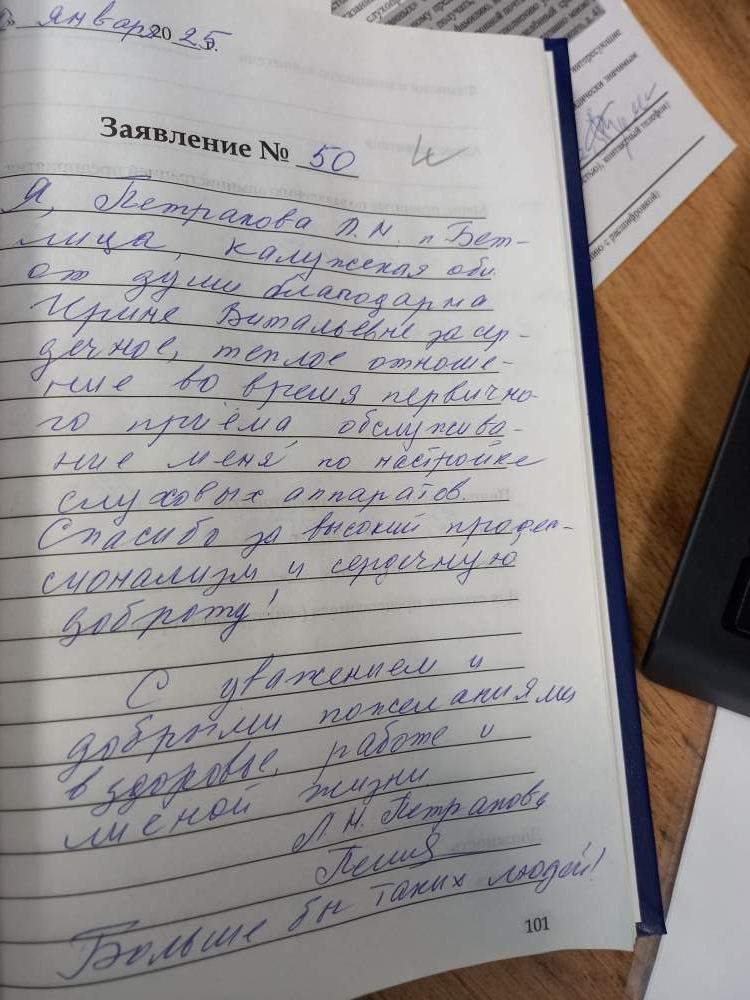 января 2025 г.
Заявление № 50
Я, Петракова Л.Н. п Бет-
лица, Калужская обл.
от души благодарна
Ирине Витальевне за сер-
дечное, теплое отноше-
ние во время первично-
го приёма, обслужива-
ние меня по настройке
слуховых аппаратов.
Спасибо за высокий профес-
сионализм и сердечную
доброту!
С уважением и
добрыми пожеланиями
в здоровье, работе и
личной жизни
Л.Н. Петракова
Больше бы таких людей!
101